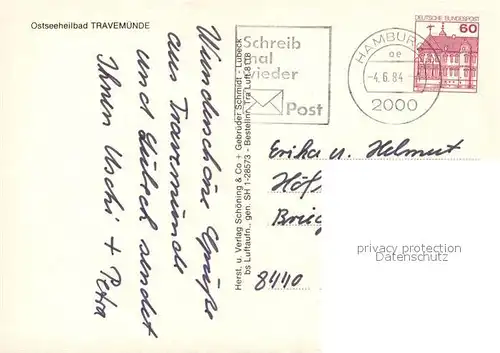 Ostseeheilbad TRAVEMÜNDE
Wunderschöne Grüße
aus Travemünde
und Lübeck sendet
Ihnen Uschi + Petra
Herst. u. Verlag Schöning & Co + Gebrüder Schmidt - Lübeck
bs Luftaufn., gen. SH 1-28573 - Bestellnr. Tra Luft 8118
Schreib
mal
wieder
Post
HAMBURG
ae
-4.6.84
2000
DEUTSCHE BUNDESPOST
60
Erika u. Helmut
Höf
8440
privacy protection
Datenschutz